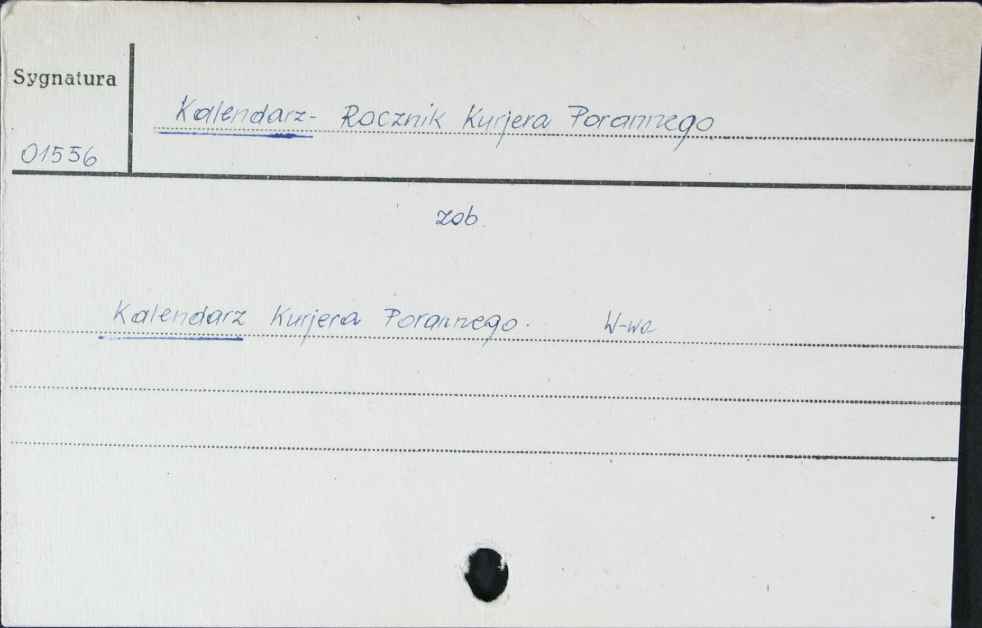 Sygnatura
Kalendarz- Rocznik Kurjera Porannego
01556
zob.
Kalendarz Kurjera Porannego. W-wa